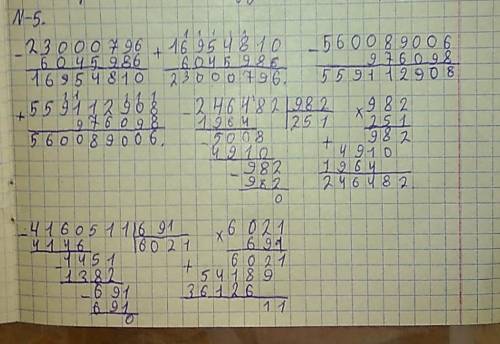 N-5.
- 23000796 + 16954810 - 560089006
6045986 6045986 976098
16954810 23000796. 559112908
+ 559112908 - 246482 | 982 × 982
976098 1964 | 251 251
560089006. - 5008 + 982
4910 4910
- 982 1964
982 246482.
0
- 4160511 | 691 × 6021
4146 | 6021 691
- 1451 + 6021
1382 54189
- 691 36126
691 11
0